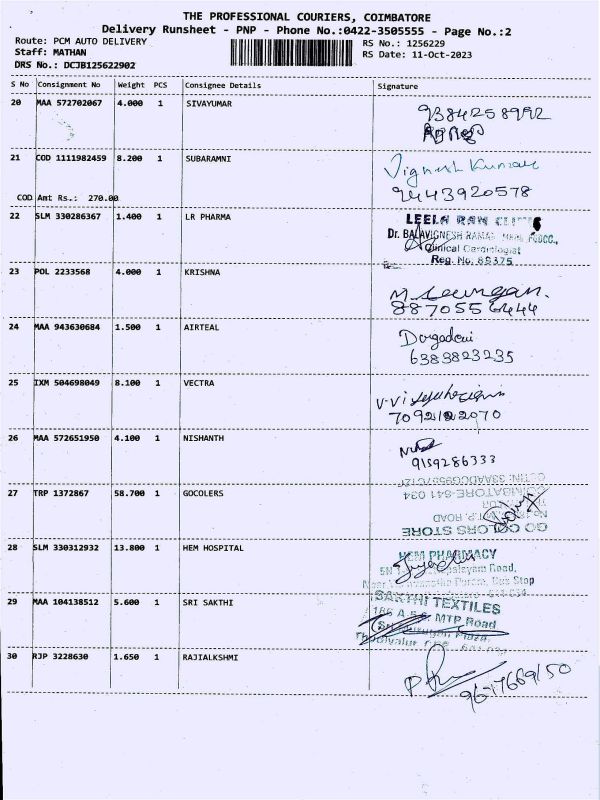 THE PROFESSIONAL COURIERS, COIMBATORE
Delivery Runsheet - PNP - Phone No.:0422-3505555 - Page No.:2
Route: PCM AUTO DELIVERY
RS No.: 1256229
Staff: MATHAN
RS Date: 11-Oct-2023
DRS No.: DCJB125622902
S No Consignment No Weight PCS Consignee Details Signature
20 MAA 572702067 4.000 1 SIVAYUMAR
9384258992
21 COD 1111982459 8.200 1 SUBARAMNI
Vignesh Kumar
9443920578
COD Amt Rs.: 270.00
22 SLM 330286367 1.400 1 LR PHARMA
LEELA RAM
Dr. BALAVIGNESH
Clinical Cardiologist
Reg. No. 89375
23 POL 2233568 4.000 1 KRISHNA
8870556444
24 MAA 943630684 1.500 1 AIRTEAL
6383823235
25 IXM 504698049 8.100 1 VECTRA
26 MAA 572651950 4.100 1 NISHANTH
9159286333
27 TRP 1372867 58.700 1 GOCOLERS
COIMBATORE-641 034
M.T.P. ROAD
GO COLORS STORE
28 SLM 330312932 13.800 1 HEM HOSPITAL
HEM PHARMACY
Road,
Bus Stop
29 MAA 104138512 5.600 1 SRI SAKTHI
SAKTHI TEXTILES
MTP Road
Plaza,
30 RJP 3228630 1.650 1 RAJIALKSHMI